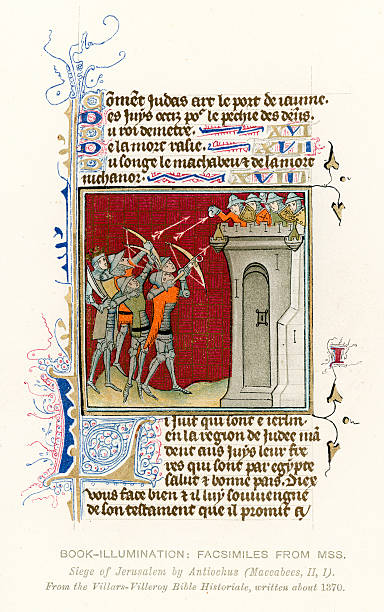 Coment Judas art le port de iaume.
Des Juys occiz por le pechie des deuis.
Du roi demetre. XVI
De la mort rasie. XVII
Du songe le machabeu & de la mort
nichanor. XVIII
I
Li Juif qui sont e ierlm
en la region de Judee ma
dent aus Juys leur fre
res qui sont par egypte
salut & bonne pais. Diex
vous face bien & il luy souuiengne
de son testament que il promist a
BOOK-ILLUMINATION: FACSIMILES FROM MSS.
Siege of Jerusalem by Antiochus (Maccabees, II, 1).
From the Villars-Villeroy Bible Historiale, written about 1370.